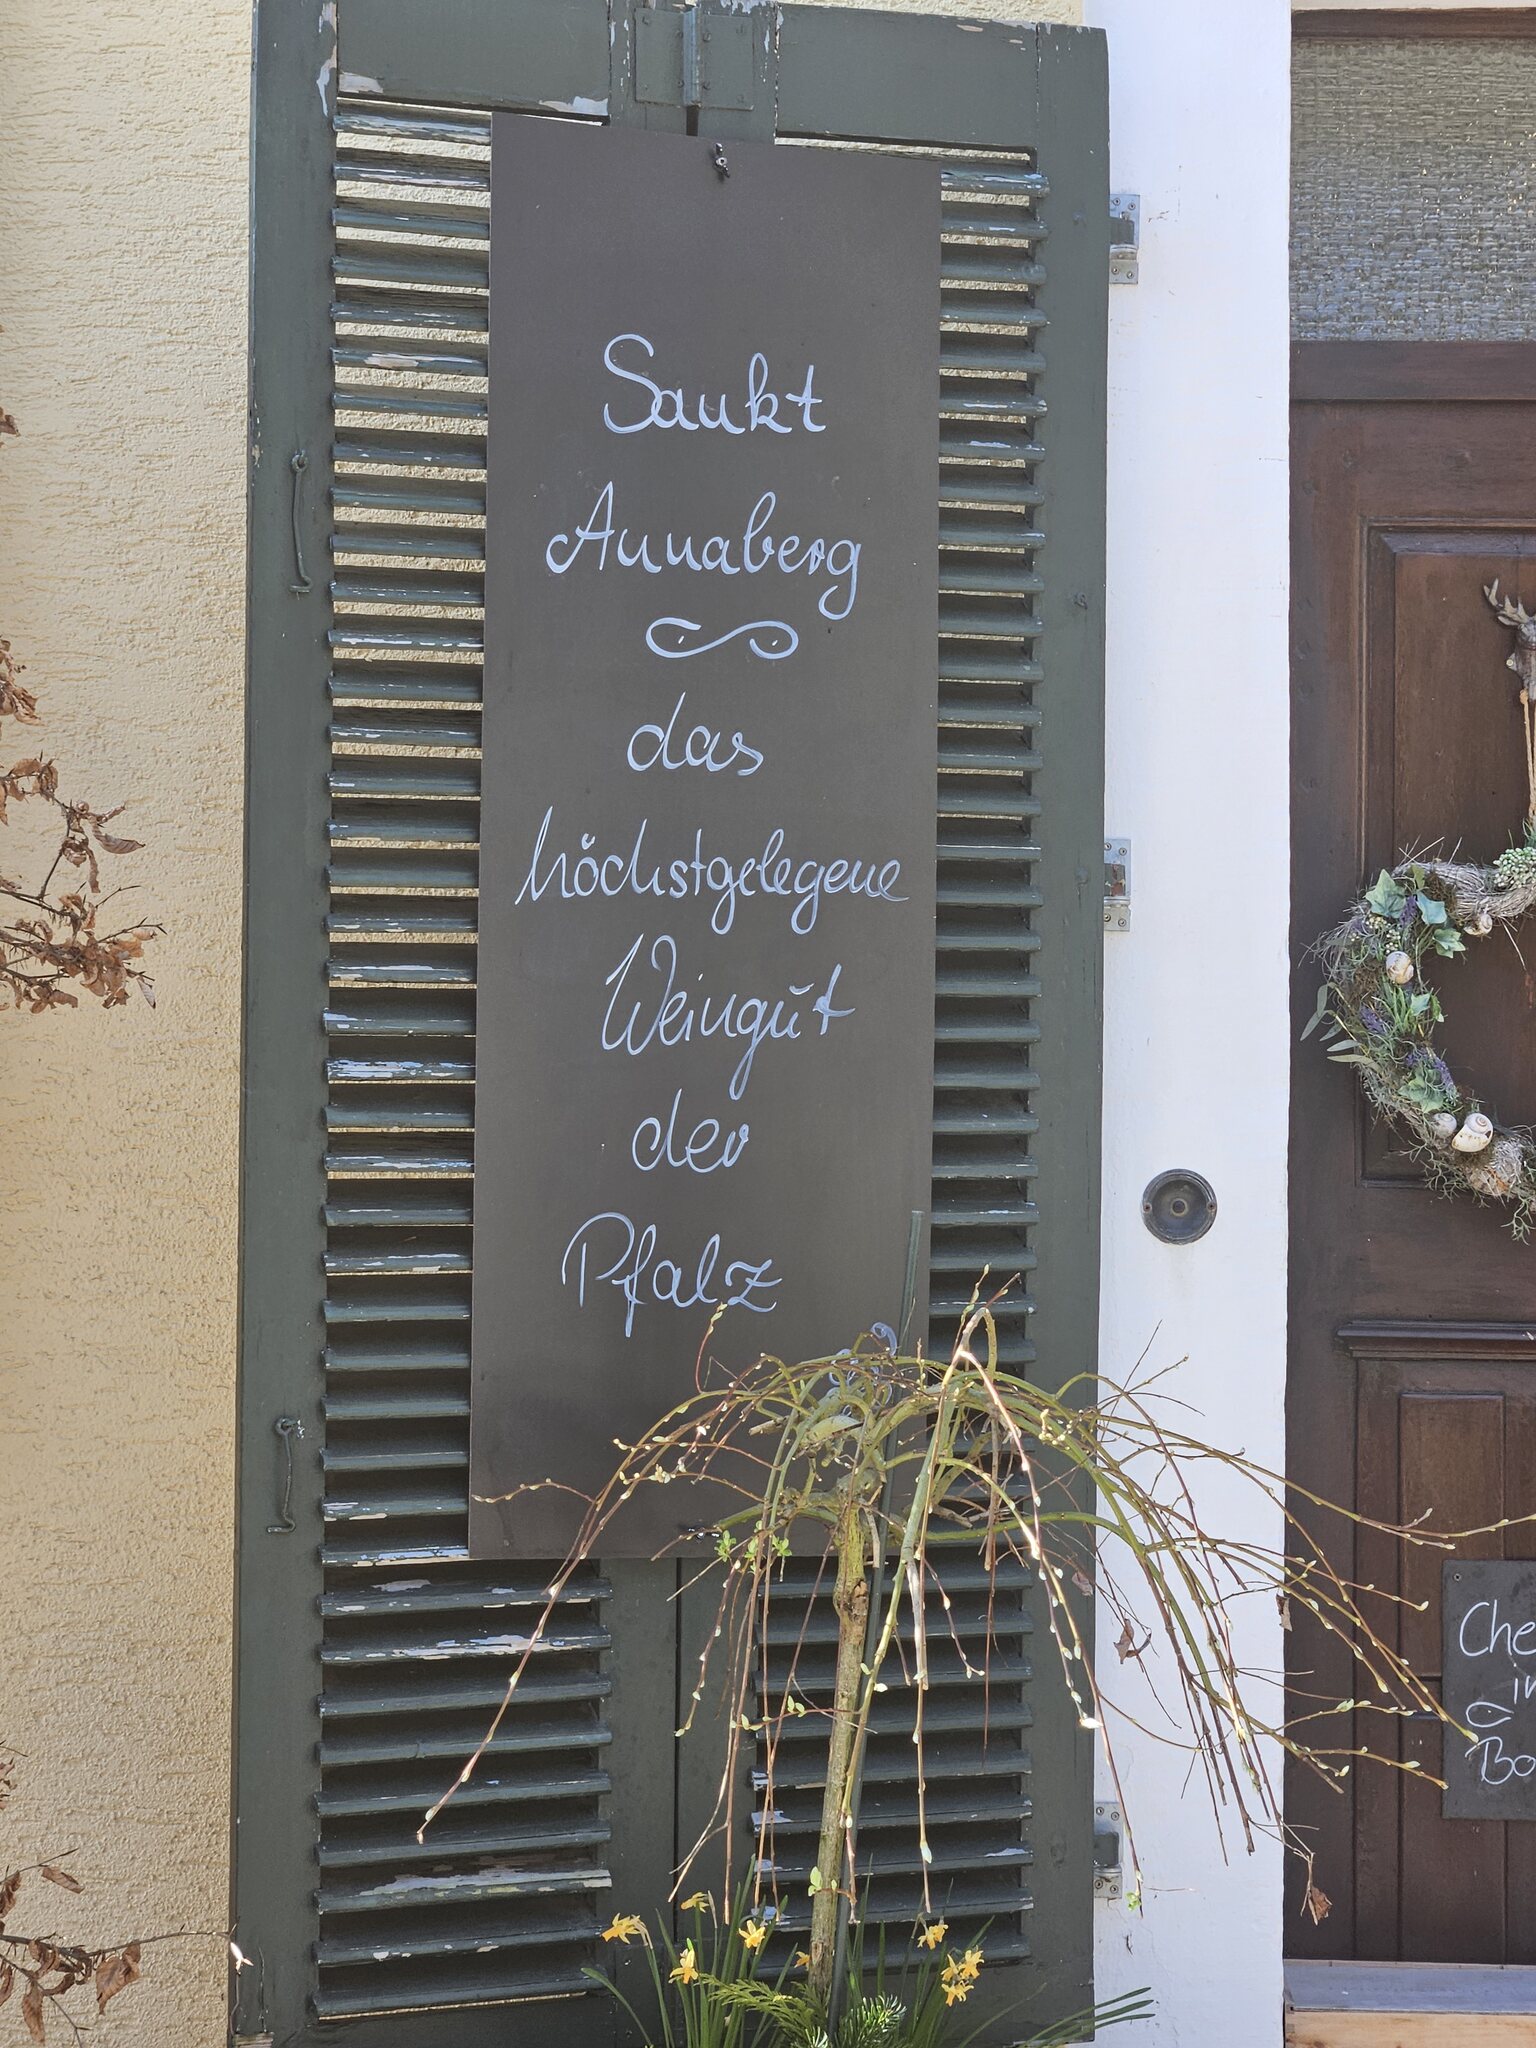 Sankt
Annaberg
das
höchstgelegene
Weingut
der
Pfalz